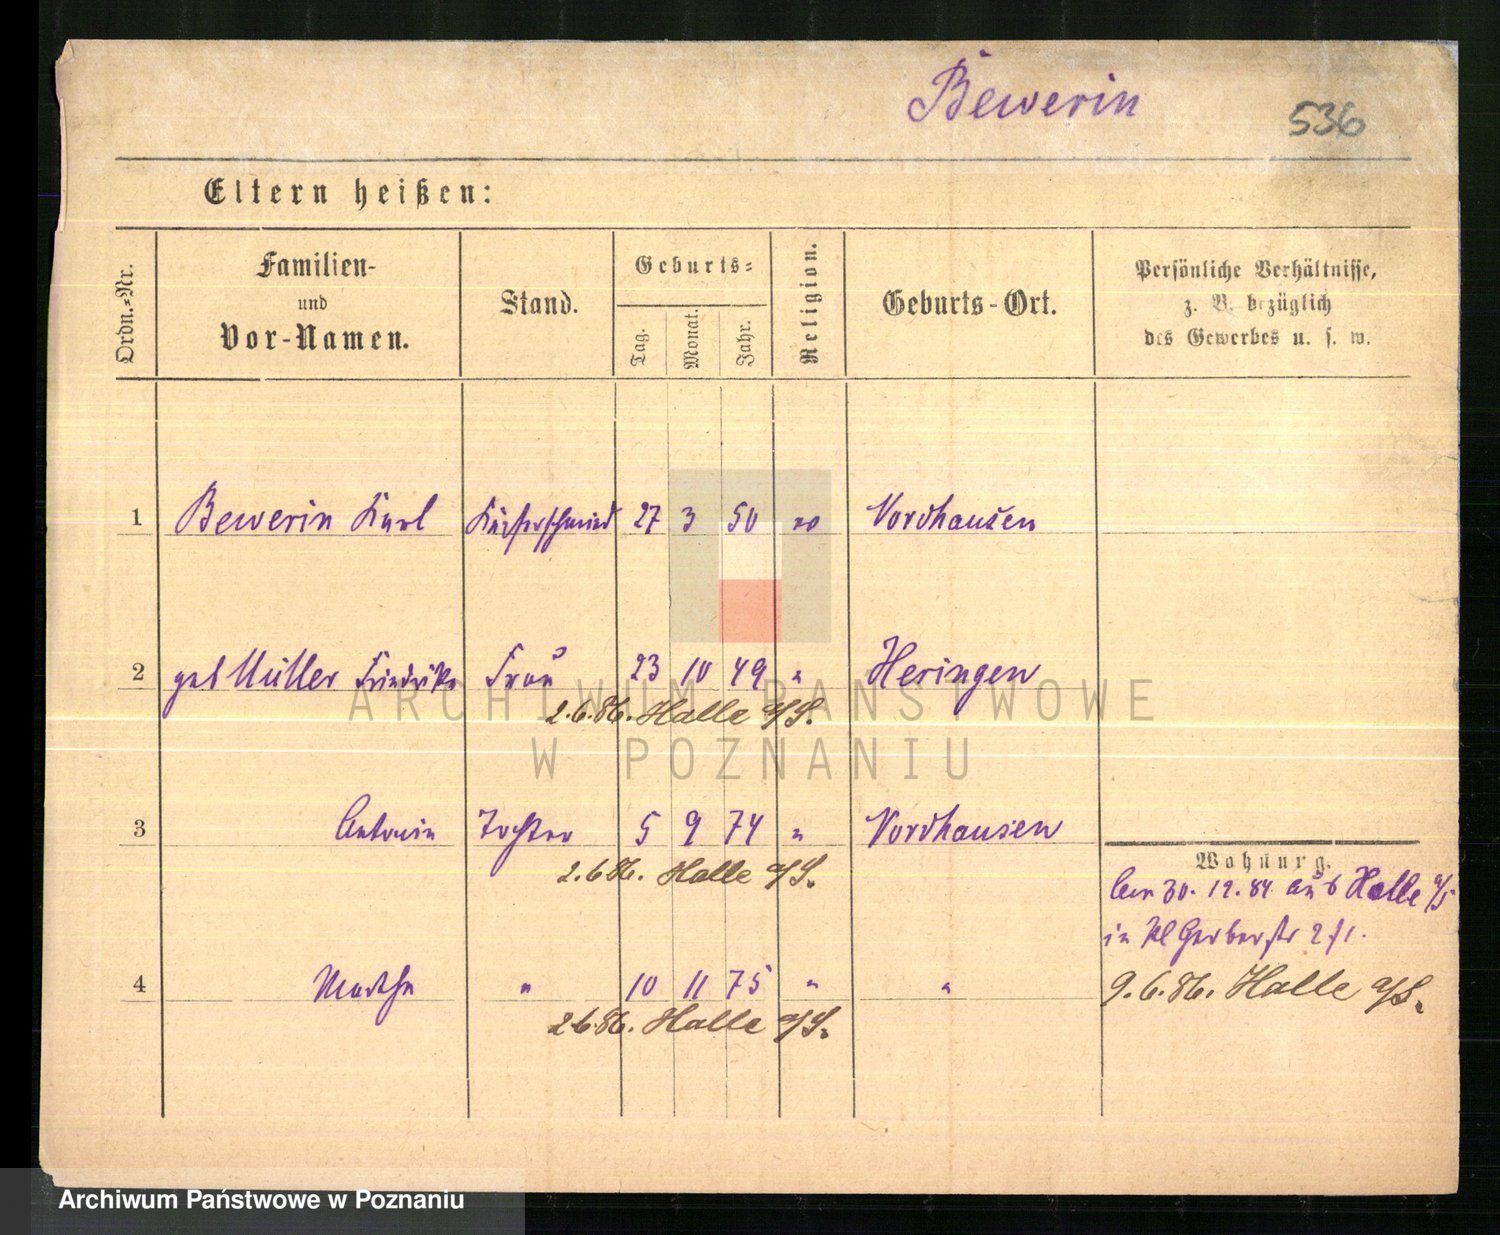 Bewerin
536
Eltern heißen:
Ordn.-Nr.
Familien-
und
Vor-Namen.
Stand.
Geburts-
Tag.
Monat.
Jahr.
Religion.
Geburts-Ort.
Persönliche Verhältnisse,
z. B. bezüglich
des Gewerbes u. s. w.
1 Bewerin Karl 27 3 50 Nordhausen
2 geb Müller Friedrike Frau 23 10 49 " Heringen
2.6.86. Halle a/S.
ARCHIWUM PAŃSTWOWE
W POZNANIU
3 Antonie Tochter 5 9 74 " Nordhausen
2.6.86. Halle a/S.
Wohnung.
30. 12. 84 aus Halle a/S
in Kl Gerberstr
4 Martha " 10 11 75 " "
2.6.86. Halle a/S.
9.6.86. Halle a/S.
Archiwum Państwowe w Poznaniu